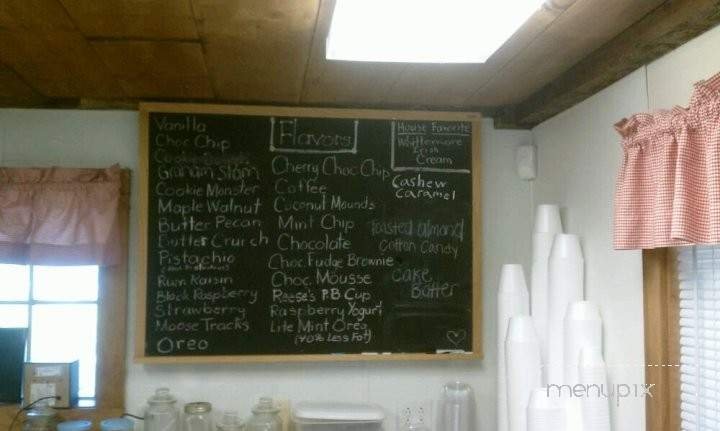 Vanilla
Choc Chip
Graham Slam
Cookie Monster
Maple Walnut
Butter Pecan
Butter Crunch
Pistachio
Rum Raisin
Black Raspberry
Strawberry
Moose Tracks
Oreo
Flavors
Cherry Choc Chip
Coffee
Coconut Mounds
Mint Chip
Chocolate
Choc. Fudge Brownie
Choc. Mousse
Reese's P.B Cup
Raspberry Yogurt
Lite Mint Oreo
(40% Less Fat)
House Favorite
Whittemore
Irish
Cream
Cashew
Caramel
Toasted Almond
Cotton Candy
Cake
Batter
menupix